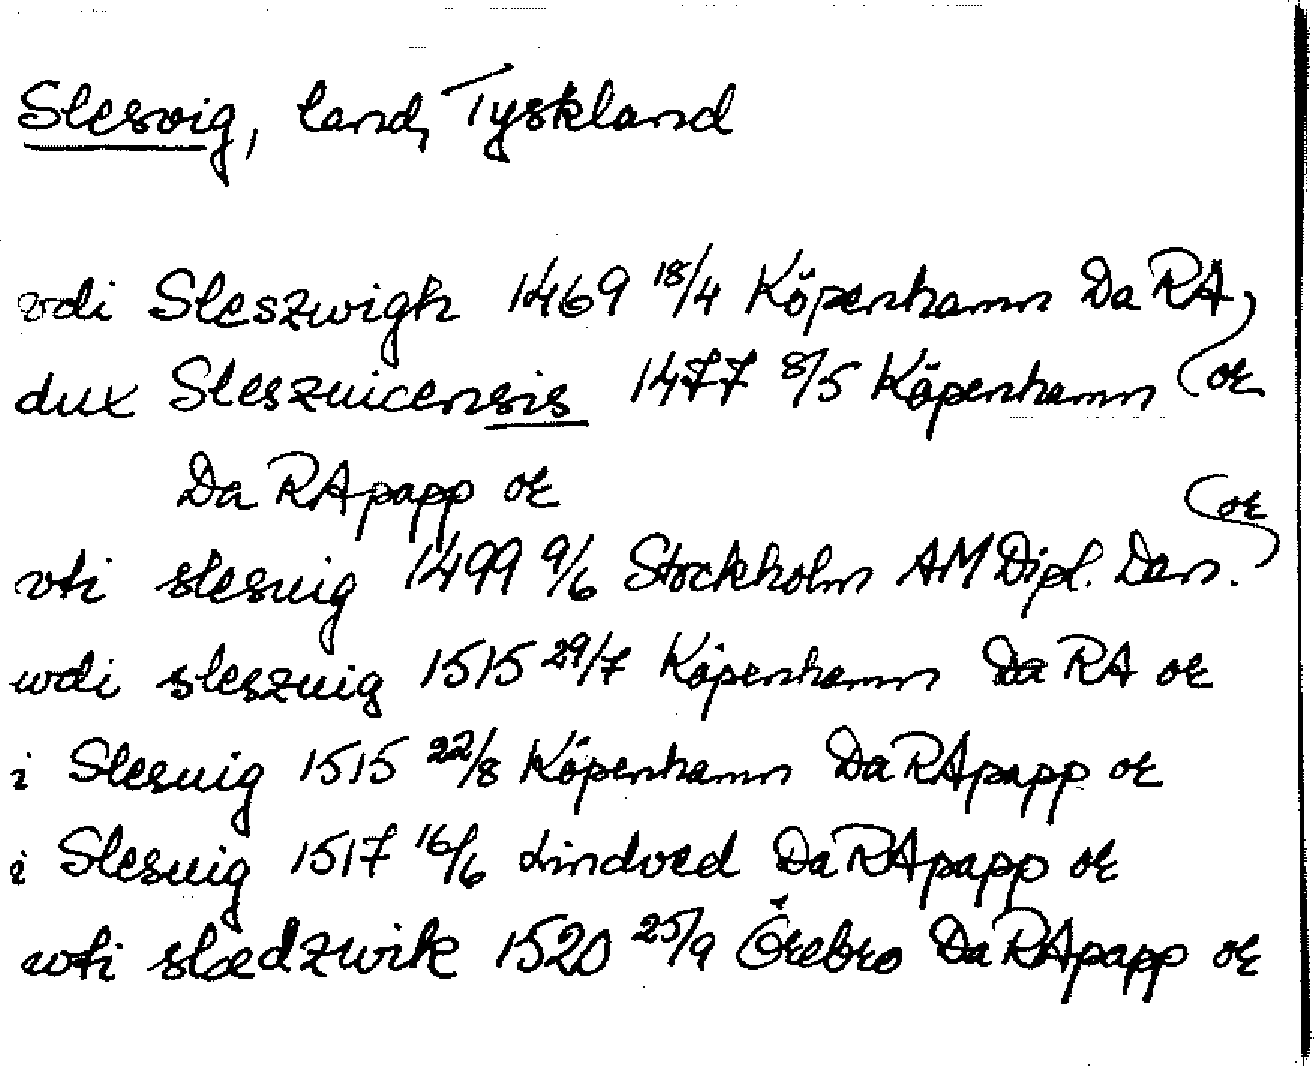 Slesvig, land, Tyskland
vdi Sleszwigh 1469 18/4 Köpenhamn Da RA
or
dux Sleszuicensis 1477 8/5 Köpenhamn
Da RApapp or
or
vti slesuig 1499 9/6 Stockholm AM Dipl. Dan.
wdi sleszuig 1515 29/7 Köpenhamn Da RA or
i Slesuig 1515 22/8 Köpenhamn Da RApapp or
i Slesuig 1517 16/6 Lindved Da RApapp or
wti slædzwik 1520 25/9 Örebro Da RApapp or